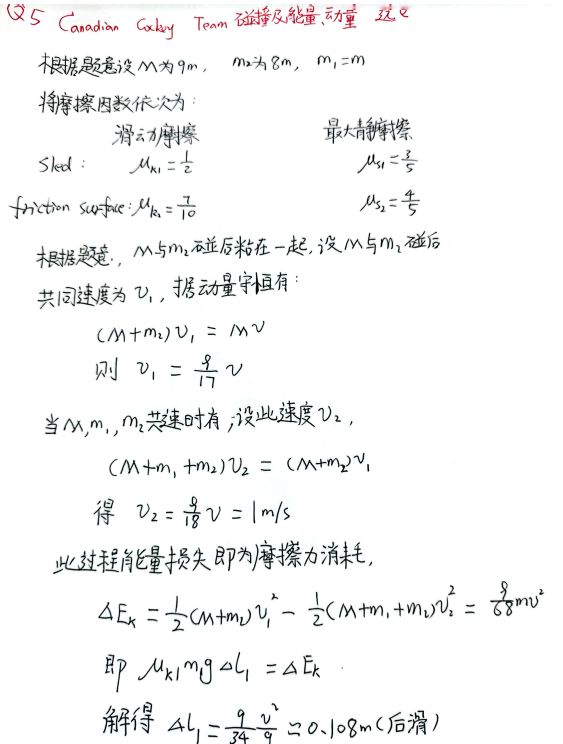 Q5 Canadian Cockey Team 碰撞及能量、动量
根据题意设 M为9m, m₂为8m, m₁=m
将摩擦因数依次为:
滑动摩擦 最大静摩擦
Sled: μk₁=1/2 μs₁=3/5
friction surface: μk₂=7/10 μs₂=4/5
根据题意, M与m₂碰后粘在一起,设M与m₂碰后
共同速度为v₁,据动量守恒有:
(M+m₂)v₁ = Mv
则 v₁ = 9/17 v
当M,m₁,m₂共速时有;设此速度v₂,
(M+m₁+m₂)v₂ = (M+m₂)v₁
得 v₂=9/18 v = 1m/s
此过程能量损失即为摩擦力消耗,
ΔEk = 1/2(M+m₂)v₁² - 1/2(M+m₁+m₂)v₂² = 9/68 mv²
即 μk₁m₁gΔL₁ = ΔEk.
解得 ΔL₁ = 9/34 v²/g ≈ 0.108m(后滑)